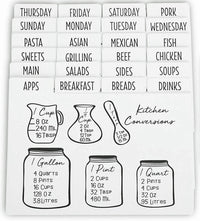 THURSDAY FRIDAY SATURDAY PORK
SUNDAY MONDAY TUESDAY WEDNESDAY
PASTA ASIAN MEXICAN FISH
SWEETS GRILLING BEEF CHICKEN
MAIN SALADS SIDES SOUPS
APPS BREAKFAST BREADS DRINKS
Kitchen
Conversions
1 Cup
8 Oz
240 ML
16 Tbsp
1 Gallon
4 Quarts
8 Pints
16 Cups
128 Oz
3.8 Litres
1 Pint
2 Cups
16 Oz
32 Tbsp
480 ML
1 Quart
2 Pints
4 Cups
32 Oz
.95 Litres